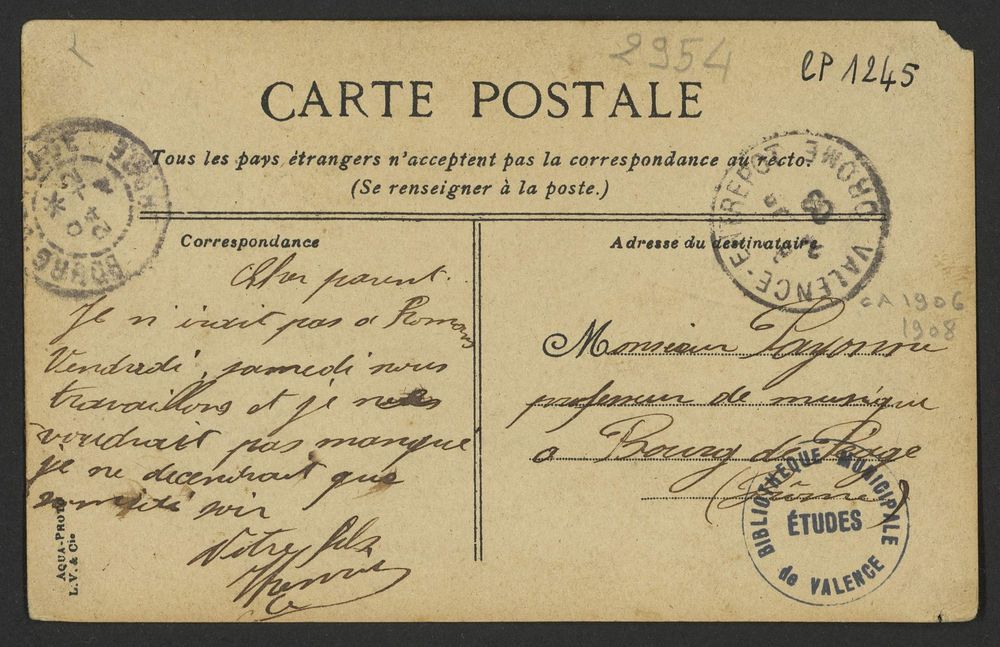 2954
CP 1245
CARTE POSTALE
Tous les pays étrangers n'acceptent pas la correspondance au recto.
(Se renseigner à la poste.)
BOURG-DE-PEAGE DROME
VALENCE-ENTREPOT DROME
Correspondance
Adresse du destinataire
CA 1906
1908
Cher parent.
Je n'irait pas a Romans
Vendredi, samedi nous
travaillons et je ne
voudrait pas manque
je ne decendrait que
samedi soir
Votre fils
Monsieur Payonne
professeur de musique
a Bourg de Péage
(Drôme)
BIBLIOTHEQUE MUNICIPALE
ÉTUDES
de VALENCE
AQUA-PHOTO
L. V. & Cie